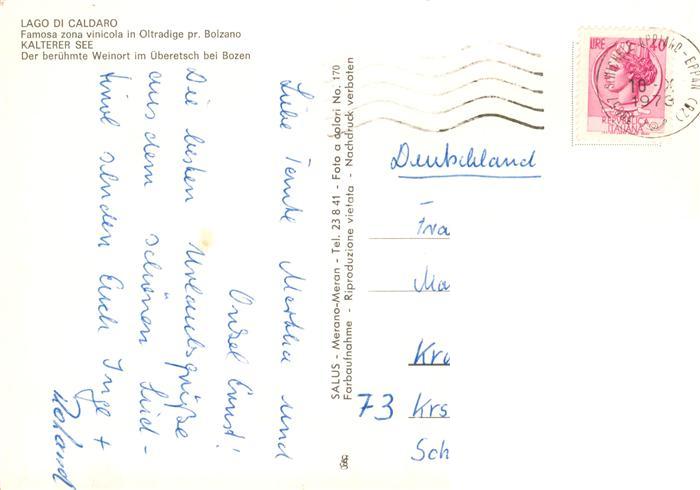 LAGO DI CALDARO
Famosa zona vinicola in Oltradige pr. Bolzano
KALTERER SEE
Der berühmte Weinort im Überetsch bei Bozen
Liebe Tante Martha und
Onkel Ernst!
Die besten Urlaubsgrüße
aus dem schönen Süd-
tirol senden Euch Inge +
Roland
SALUS - Merano-Meran - Tel. 23 8 41 - Foto a colori No. 170
Farbaufnahme - Riproduzione vietata - Nachdruck verboten
LIRE 40
REPVBBLICA
ITALIANA
APPIANO-EPPAN
1973
Deutschland
Fra
Ma
Kr
73 Krs
Sch